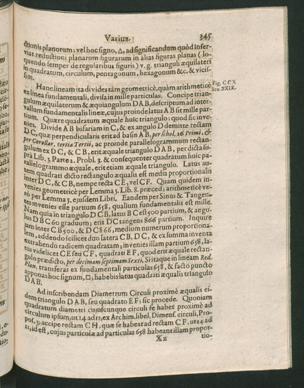 Varius. 345
chantis planorum: vel hoc signo, Δ, ad significandum quòd inser-
viat reductioni planorum figurarum in alias figuras planas (lo-
quendo semper de regularibus figuris) v.g. trianguli æquilateri
in quadratum, circulum, pentagonum, hexagonum &c. & vicis-
sim.
Hanc lineam ita divides tàm geometricè, quàm arithmeticè
ex linea fundamentali, divisa in mille particulas. Concipe trian-
gulum æquilaterum & æquiangulum D A B, descriptum ad inter-
vallum fundamentalis lineæ, cujus proinde latus A B sit mille par-
tium. Quære quadratum æquale huic triangulo; quod sic inve-
nies. Divide A B bifariam in C, & ex angulo D demitte rectam
D C, quæ perpendicularis erit ad basin A B,
ac proinde parallelogrammum rectan-
gulum ex D C, & C B, erit æquale triangulo D A B, per dicta su-
pra Lib. 3. Parte 1. Probl. 5. & consequenter quadratum huic pa-
rallelogrammo æquale, erit etiam æquale triangulo. Latus au-
tem quadrati dicto rectangulo æqualis est media proportionalis
inter D C, & C B, nempe recta C E, vel C F. Quam quidem in-
venies geometricè per Lemma 5. Lib. 8. præced: arithmeticè ve-
rò per Lemma 7. ejusdem Libri. Eandem per Sinus & Tangen-
tes invenies esse partium 658, qualium fundamentalis est mille.
Nam quia in triangulo D C B, latus B C est 500 partium, & angu-
lus D B C 60 graduum; erit D C tangens 866 partium. Inquire
jam inter C B 500, & D C 866, medium numerum proportiona-
lem, addendo scilicet duo latera C B, D C, & ex summa inventa
extrahendo radicem quadratam; invenies illam partium 658, la-
tus videlicet C E seu C F, quadrati E F, quod erit æquale rectan-
gulo prædicto, per decimam septimam Sexti. Si itaque in lineam Red.
Plan. transferas ex fundamentali particulas 658, & facto puncto
apponas hoc signum, □; habebis latus quadrati æqualis triangulo
D A B.
Ad inscribendam Diametrum Circuli proximè æqualis ei-
dem triangulo D A B, seu quadrato E F; sic procede. Quoniam
quadratum diametri cujuscunque circuli se habet proximè ad
circulum ipsum, ut 14 ad 11, ex Archim. libel. Dimens. circuli, Pro-
pos. 2; accipe rectam C H, quæ se habeat ad rectam C F, ut 14 ad
11, id est, cujus particulæ ad particulas 658 habeant illam propor-
X x tio-
Fig. CCX